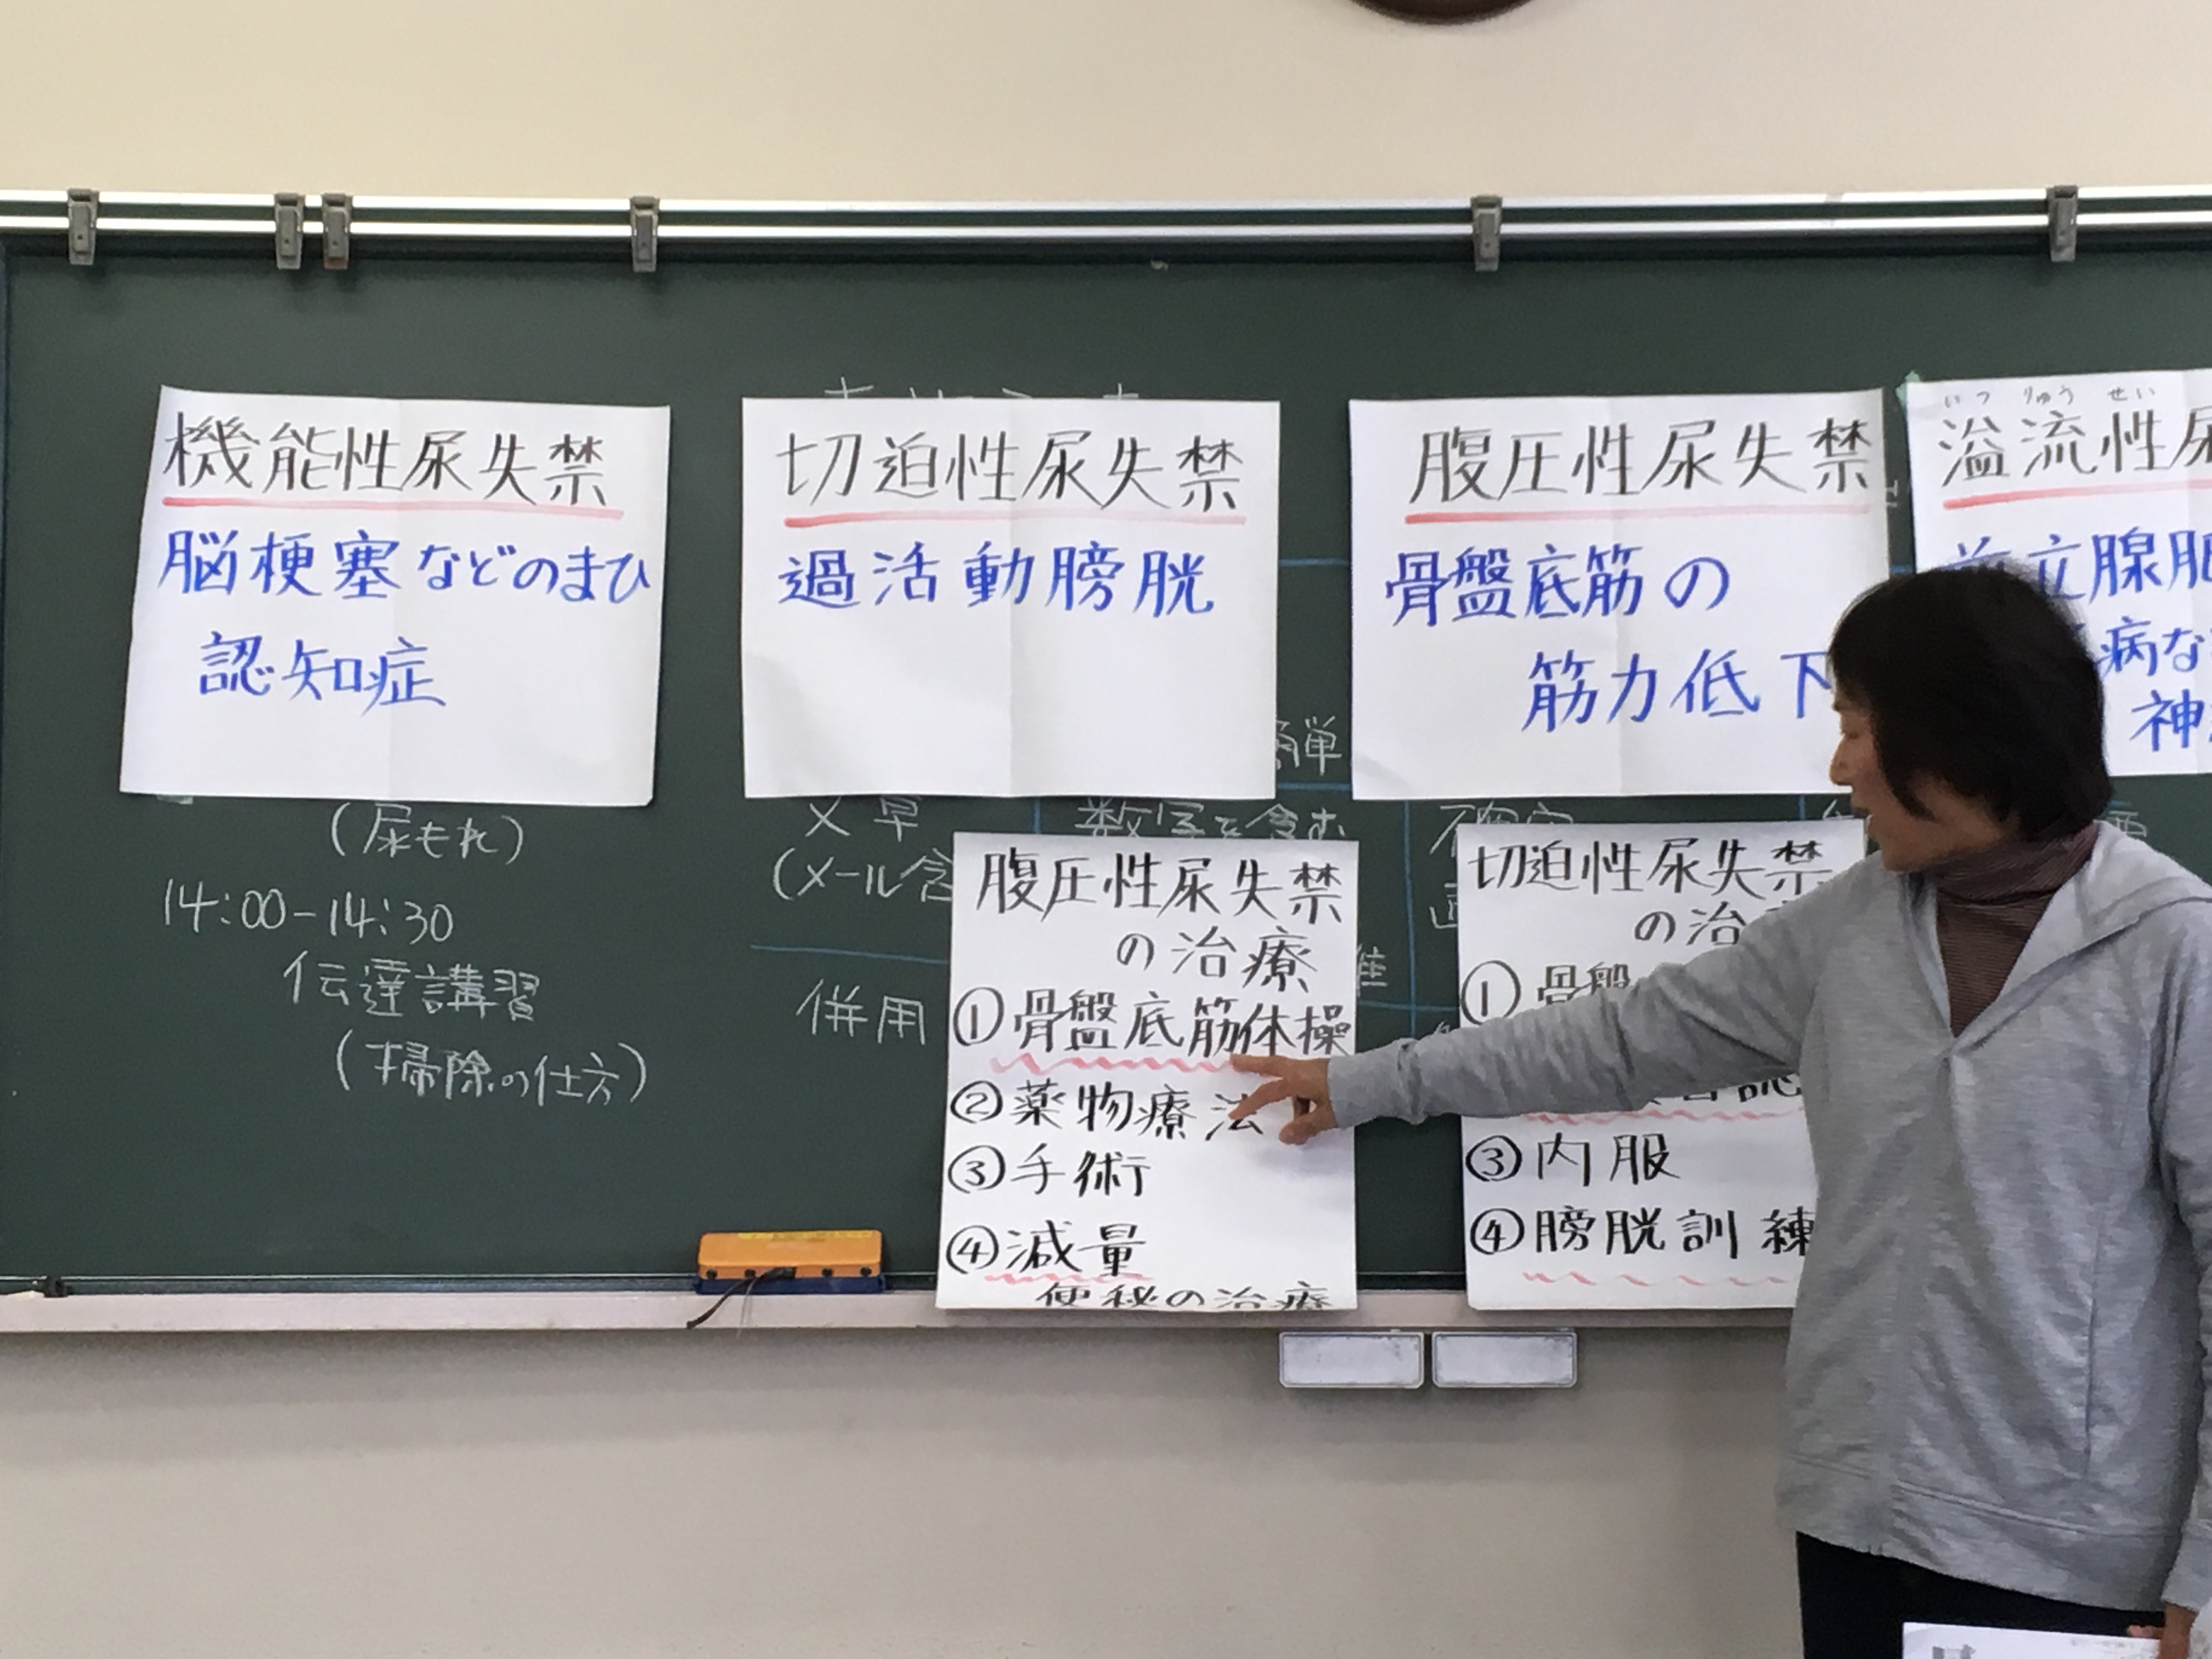 機能性尿失禁
脳梗塞などのまひ
認知症
切迫性尿失禁
過活動膀胱
腹圧性尿失禁
骨盤底筋の
筋力低下
いつ りゅう せい
溢流性尿
立腺肥
病な
神
(尿もれ)
14:00-14:30
伝達講習
(掃除の仕方)
簡単
文章
数字を含む
(メール含
併用
腹圧性尿失禁
の治療
①骨盤底筋体操
②薬物療法
③手術
④減量
便秘の治療
切迫性尿失禁
の治
①骨盤
③内服
④膀胱訓練